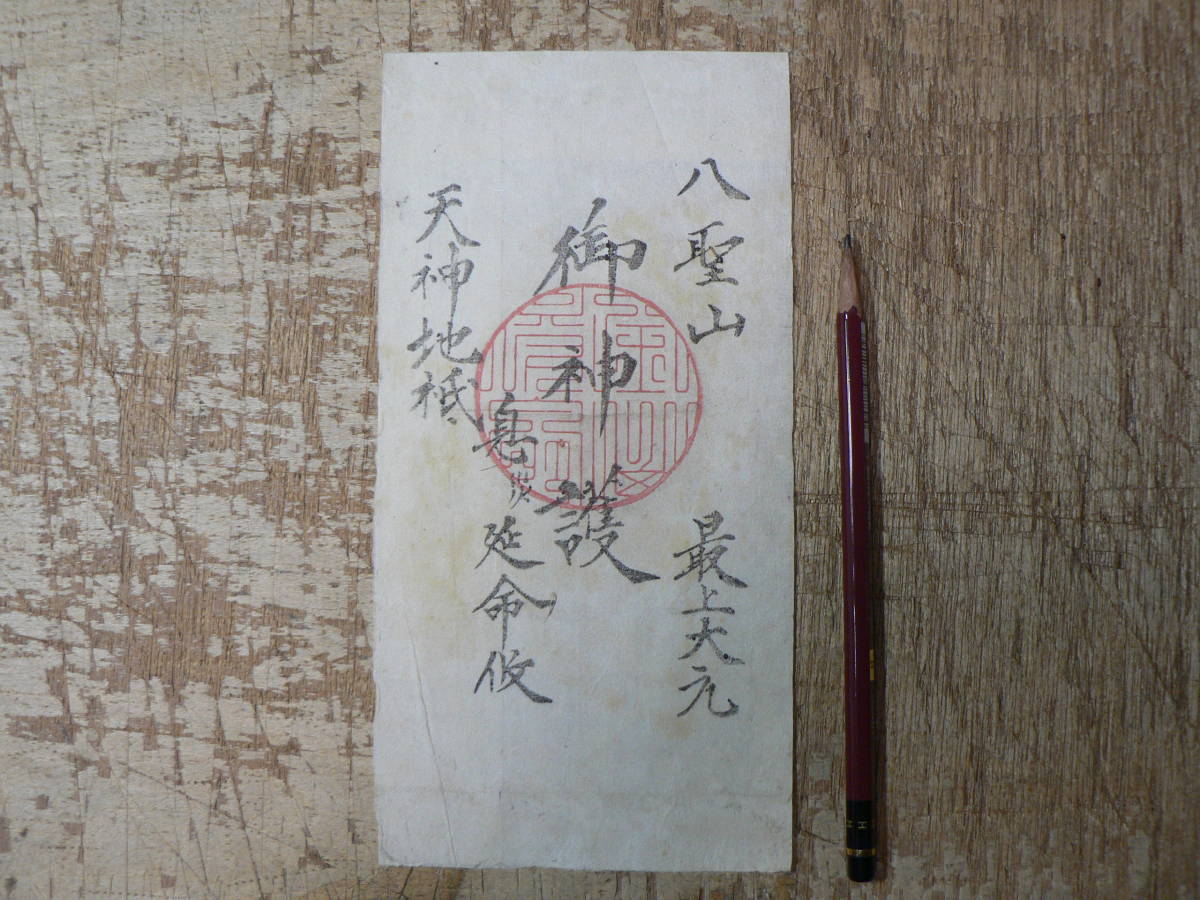 八聖山 最上大元
御神護
息災延命攸
天神地祇
H